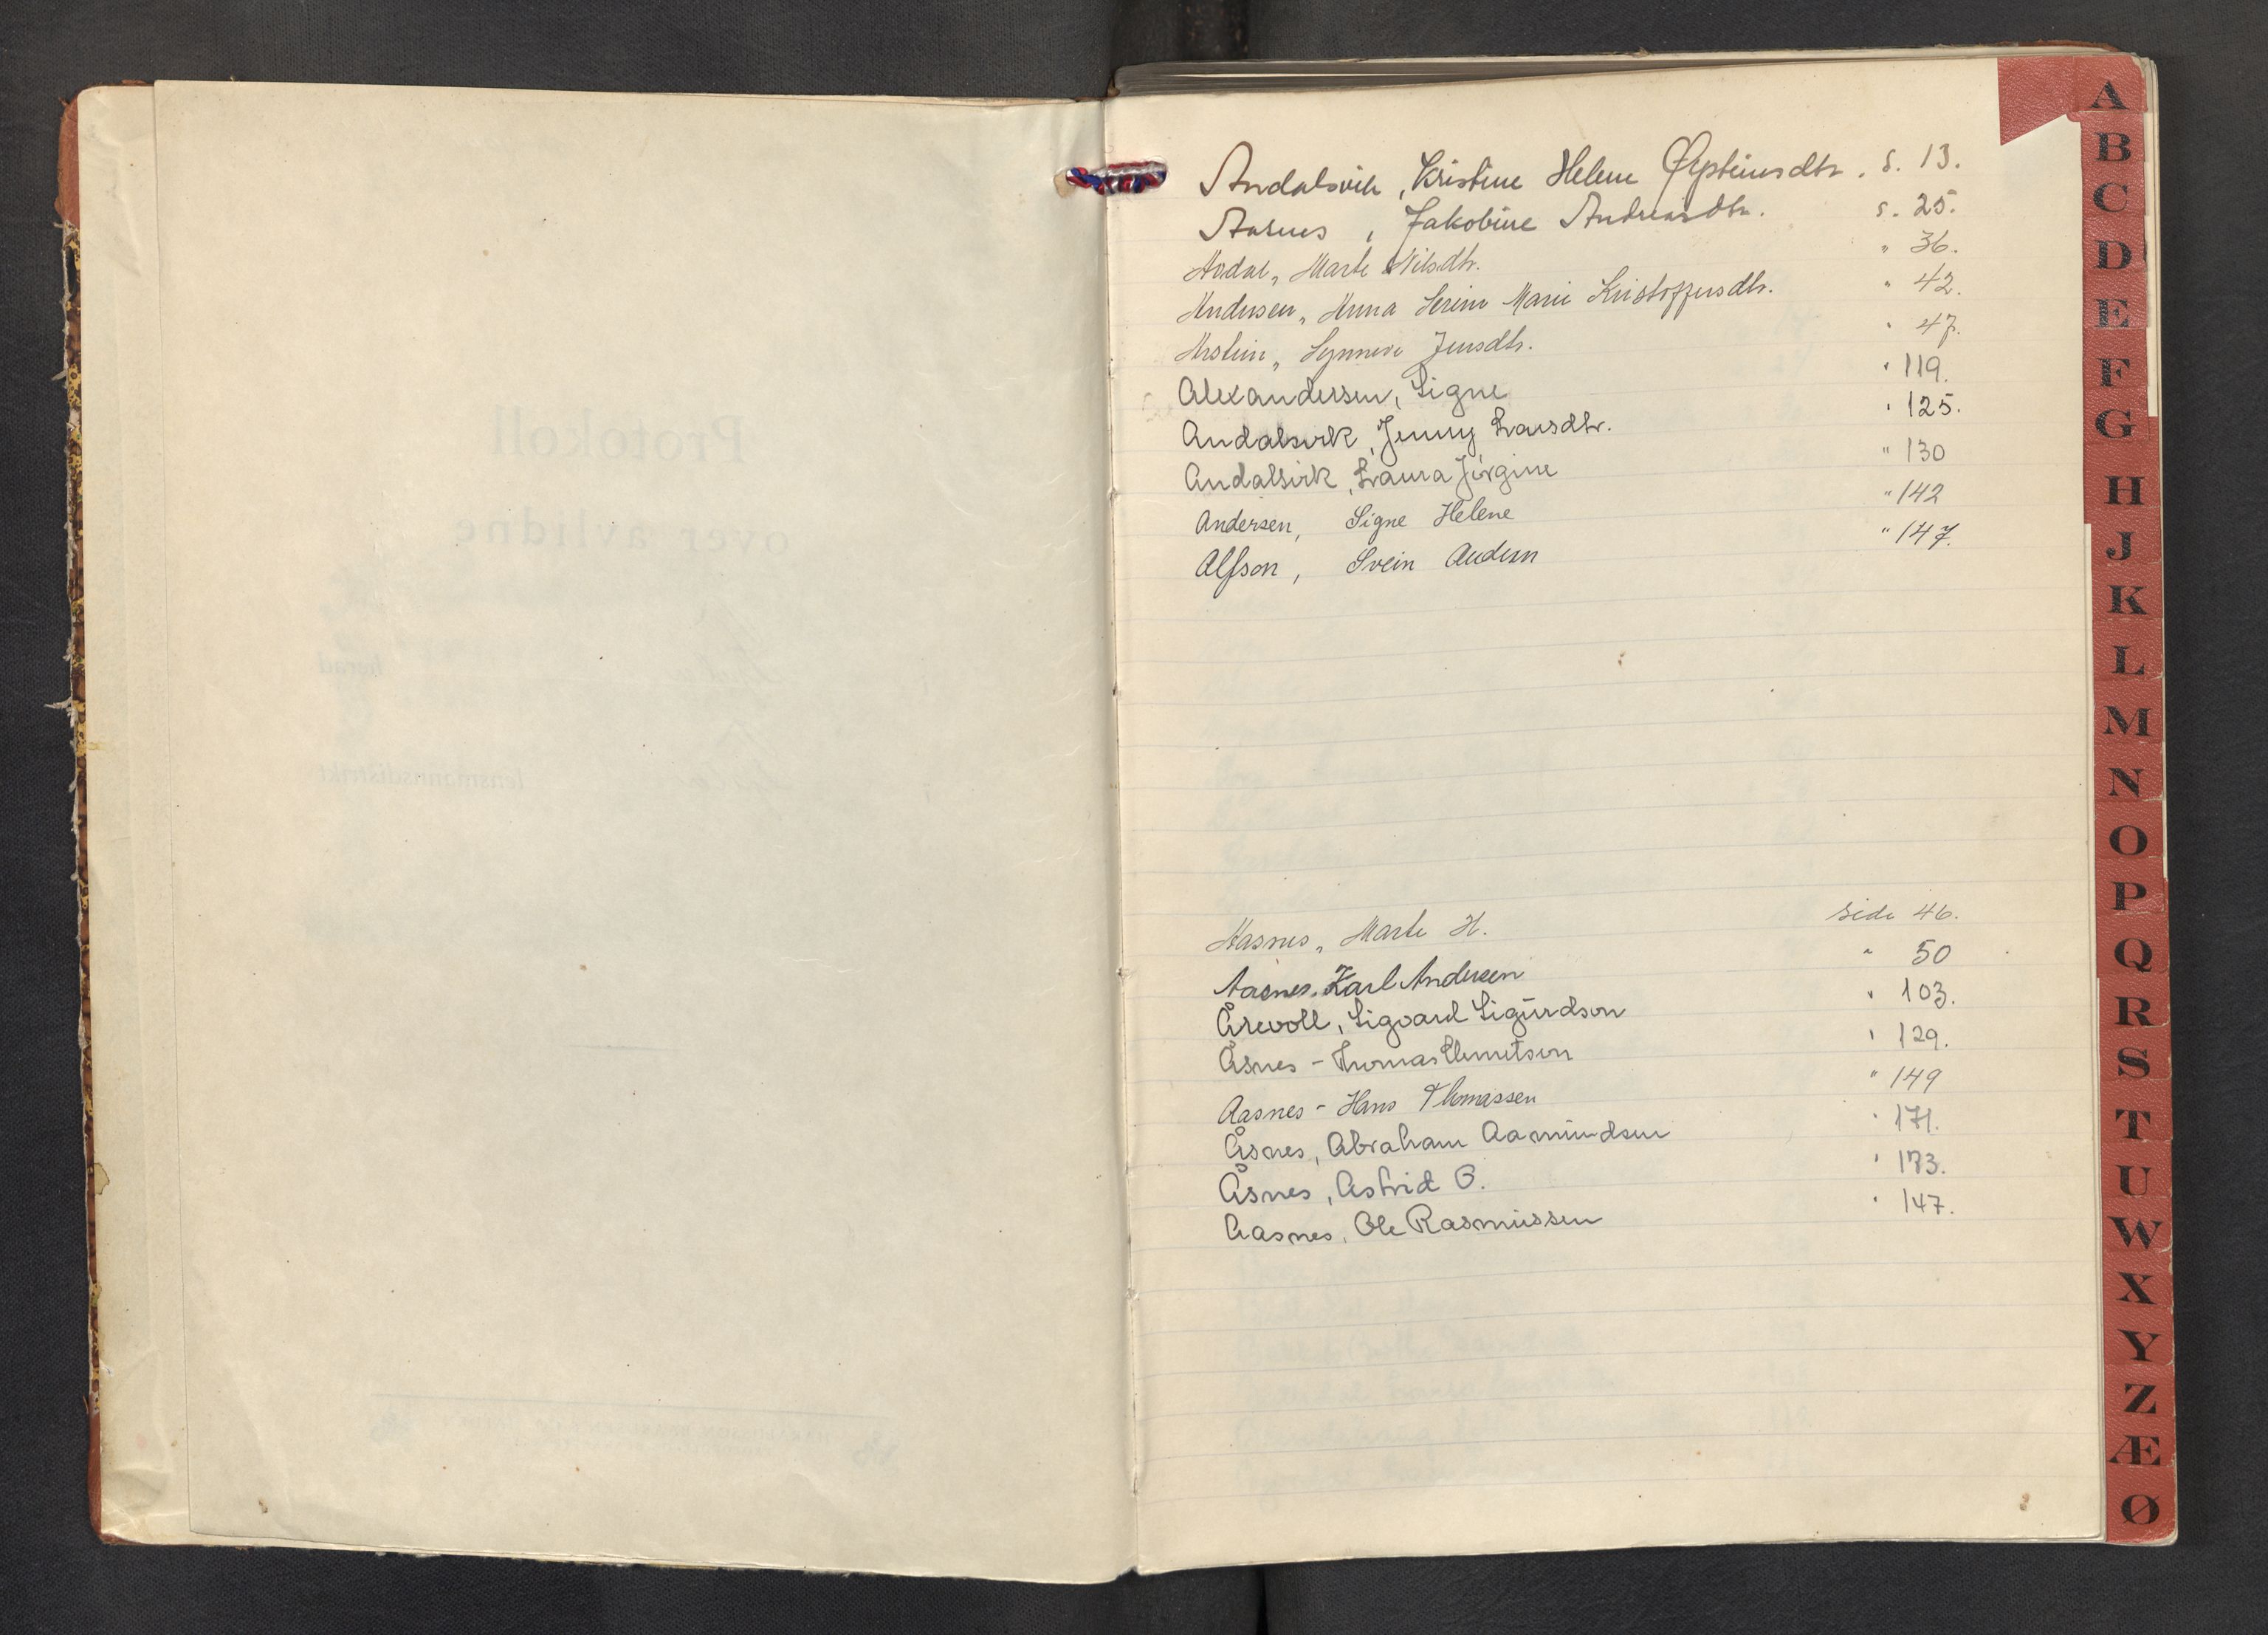 Protokoll
over avlidne
herad
lensmannsdistrikt
Andalsvik, Kristine Helene Østeinsdtr. s. 13.
Aasnes, Jakobine Andreasdtr. s. 25.
Aadal, Marte Nilsdtr. " 36.
Andersen, Anna Serine Marie Kristoffersdtr. " 42.
Arstein, Synneve Jensdtr. " 47.
Alexandersen, Signe " 119.
Andalsvik, Jenny Larsdtr. " 125.
Andalsvik, Laura Jørgine " 130
Andersen, Signe Helene " 142
Alfson, Svein Audun " 147.
Aasnes, Marte H. side 46.
Aasnes, Karl Andersen " 50
Årevoll, Sigvard Sigurdson " 103.
Åsnes - Thomas Clemetsen " 129.
Aasnes - Hans Thomassen " 149
Åsnes, Abraham Aamundsen " 171.
Åsnes, Astrid O. " 173.
Aasnes, Ole Rasmussen " 147.
A
B
C
D
E
F
G
H
J
K
L
M
N
O
P
Q
R
S
T
U
W
X
Y
Z
Æ
Ø